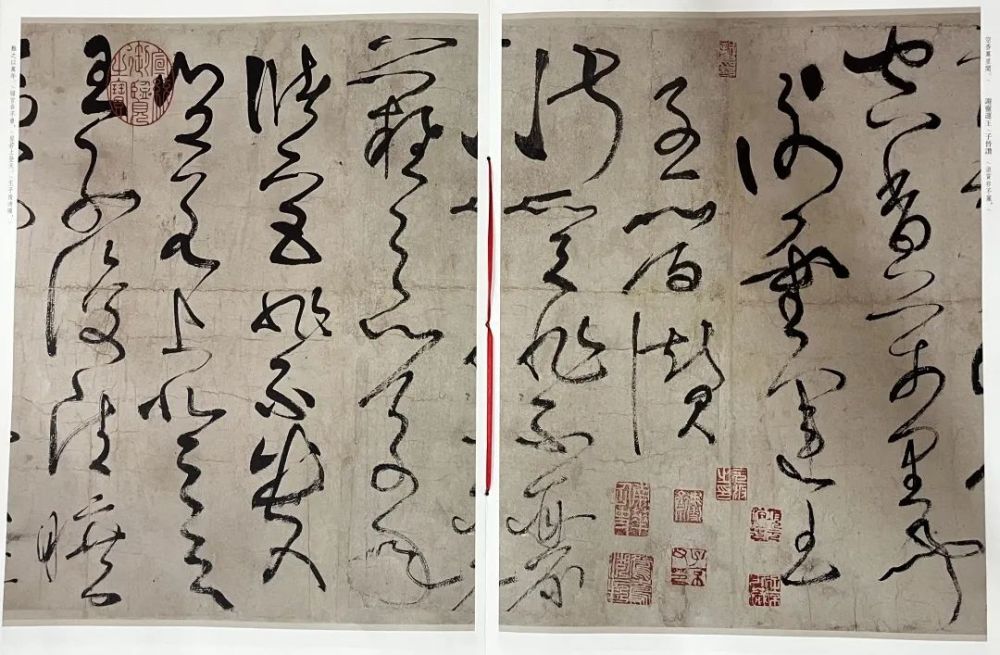 空香萬里聞。 謝靈運王 子晉讚 淑質非不麗。
空香萬里聞
謝靈運王
子晉讚
淑質非不麗
難之以萬年
儲宮非不貴
豈若上登天
王子復清曠
難之以萬年。 儲宮非不貴， 豈若上登天。 王子復清曠，